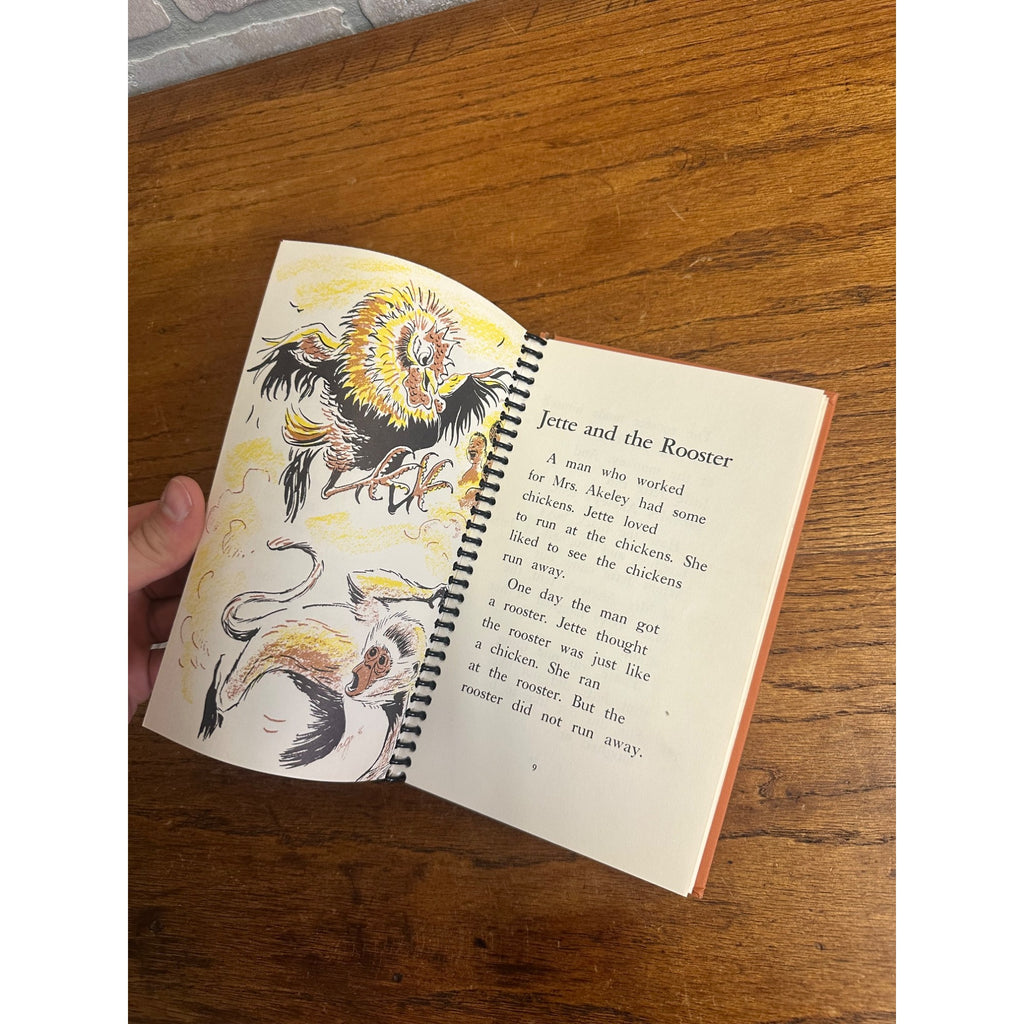 Jette and the Rooster
A man who worked
for Mrs. Akeley had some
chickens. Jette loved
to run at the chickens. She
liked to see the chickens
run away.
One day the man got
a rooster. Jette thought
the rooster was just like
a chicken. She ran
at the rooster. But the
rooster did not run away.
9